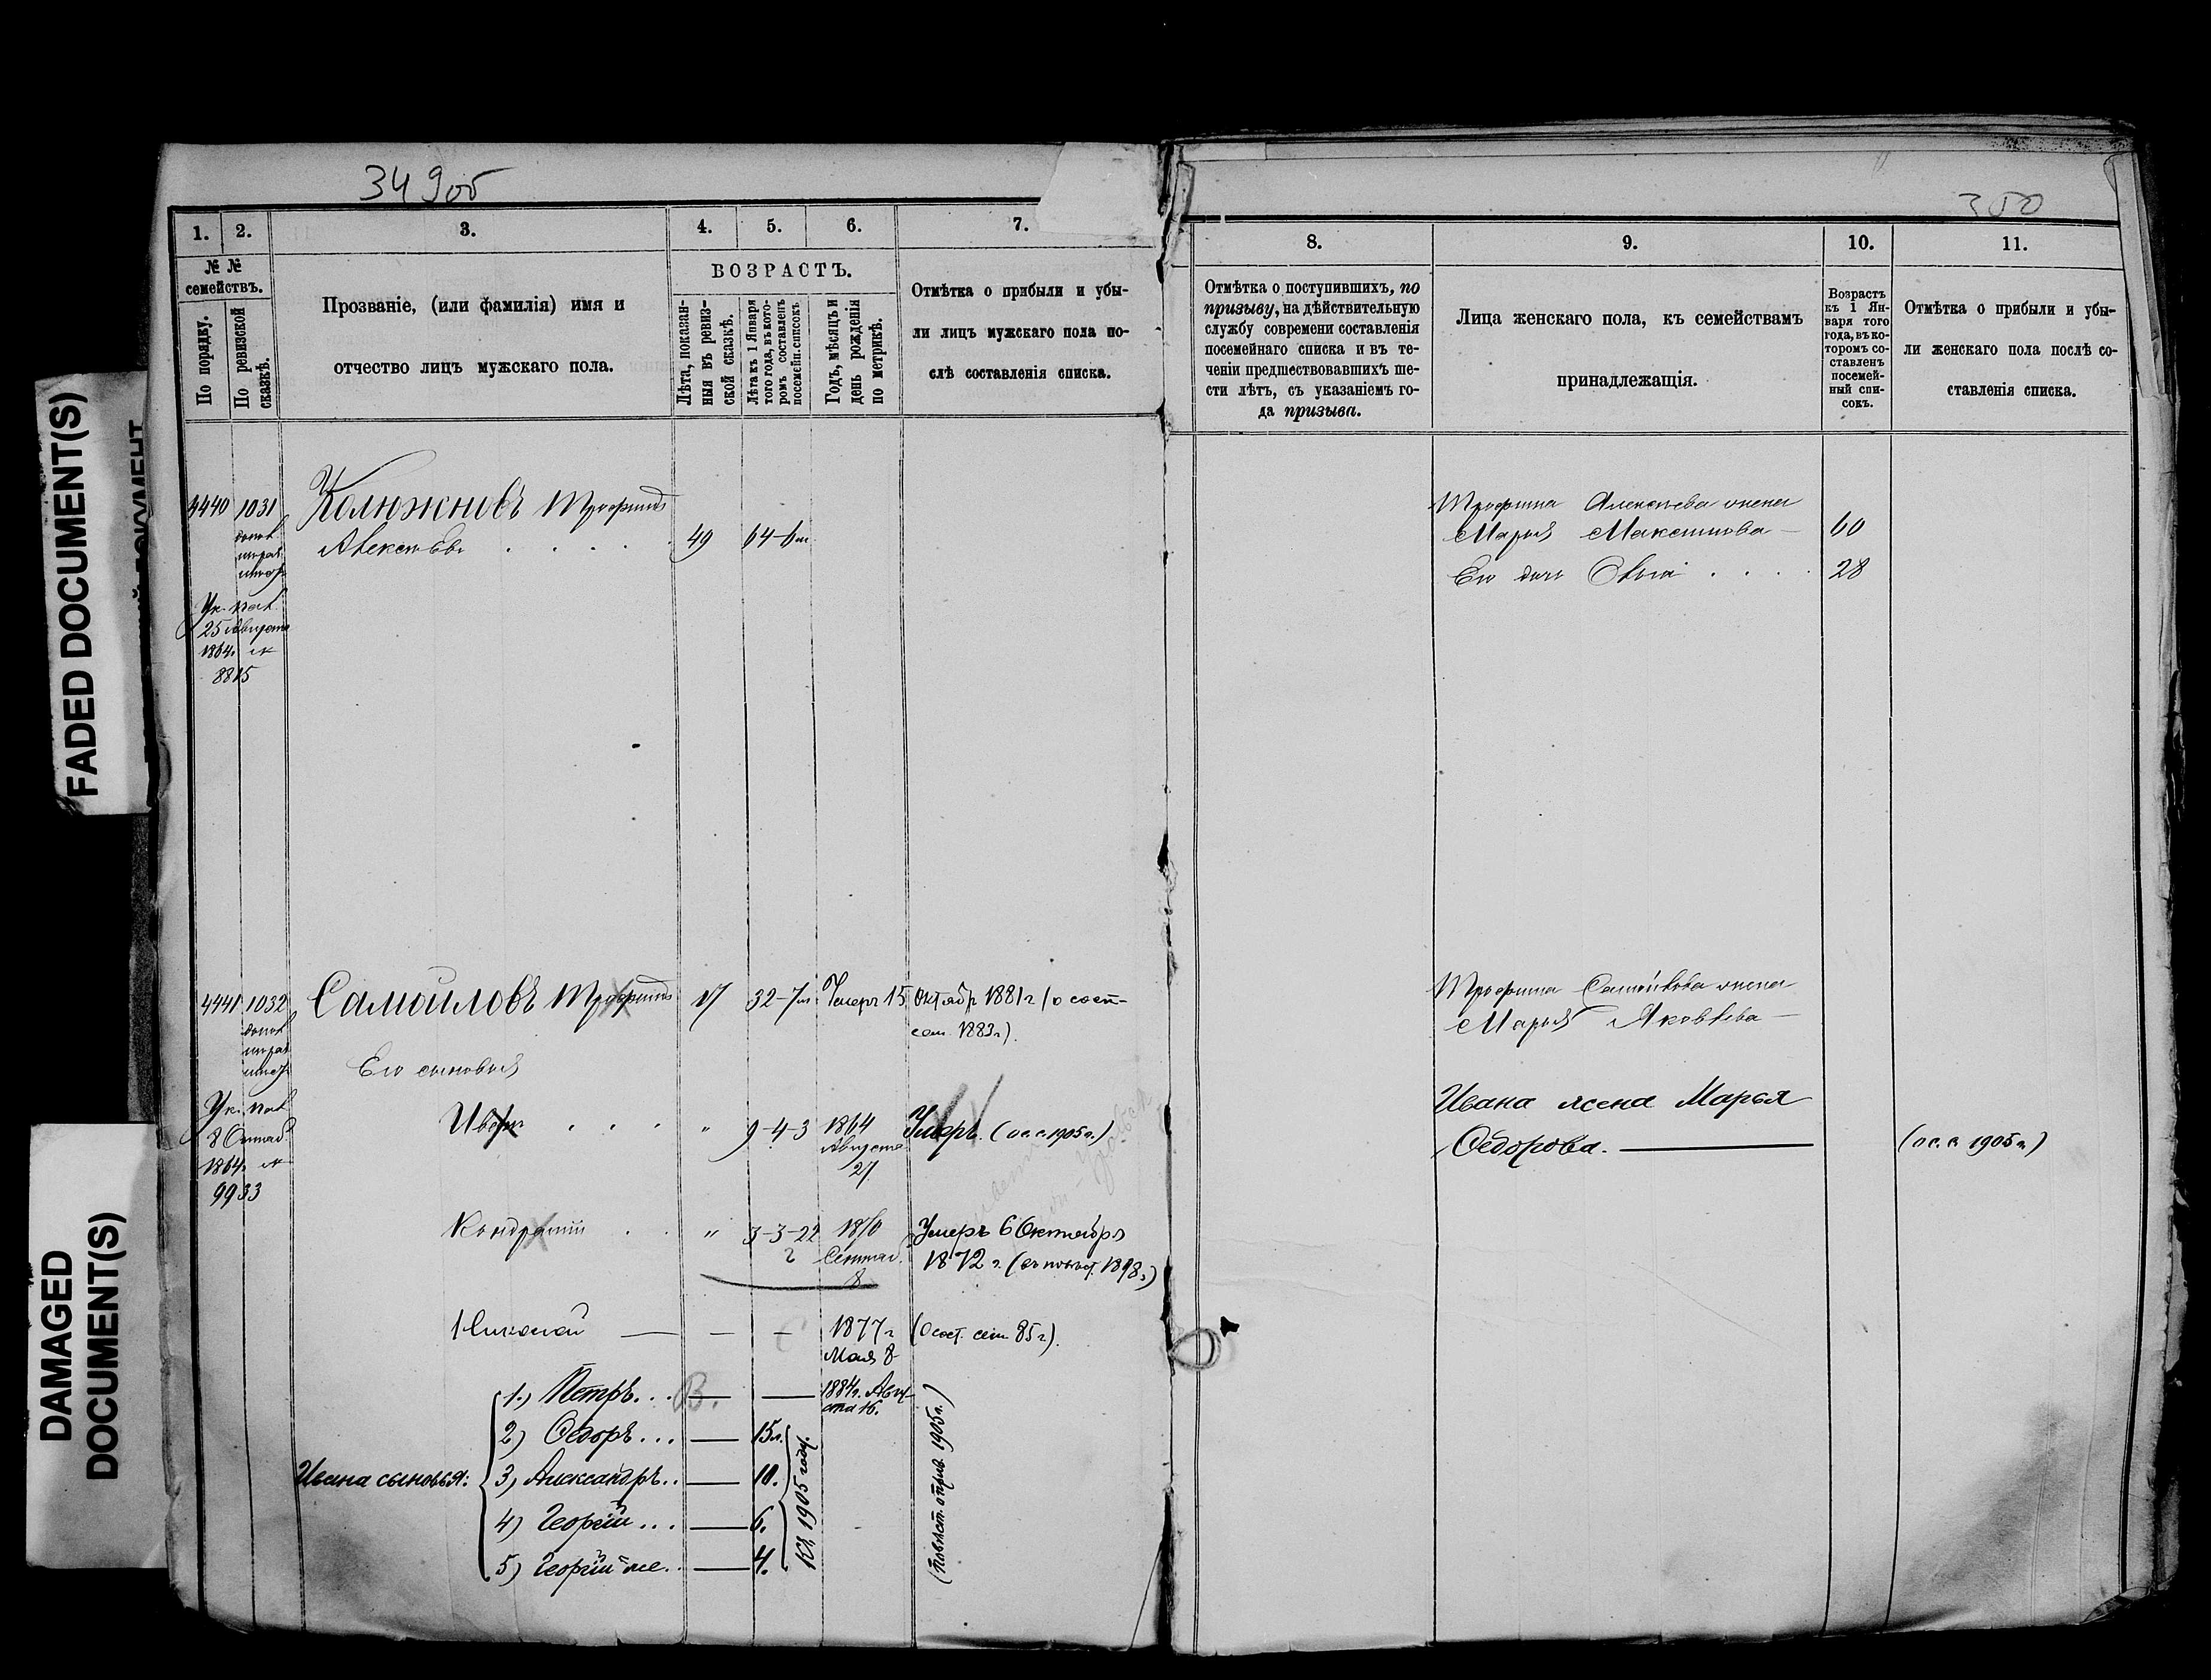 FADED DOCUMENT(S)
DAMAGED
DOCUMENT(S)
349об
1.
2.
3.
4.
5.
6.
7.
№ №
семействъ.
По порядку.
По ревизской
сказкѣ.
Прозваніе, (или фамилія) имя и
отчество лицъ мужскаго пола.
ВОЗРАСТЪ.
Лѣта, показан-
ныя въ ревиз-
ской сказкѣ.
Лѣта къ 1 Января
того года, въ кото-
ромъ составленъ
посемейн. списокъ
Годъ, мѣсяцъ и
день рожденія
по метрикѣ.
Отмѣтка о прибыли и убы-
ли лицъ мужскаго пола по-
слѣ составленія списка.
4440 1031 Колюжновъ Трофимъ
Алексѣевъ . . . . . 49 64-6м
25 Августа
1864
8815
4441 1032 Самойловъ Трофимъ 17 32-7м Умеръ 15 Октябр 1881 г (о сост-
сем. 1883 г.).
Его сыновья
Иванъ . . . . " 9-4-3 1864 Умеръ. (о с. с. 1905 г.)
Августа
27
8
1864
9933
Кондратій . . " 3-3-22 1870 Умеръ 6 Октября
Сентяб. 1872 г. (
8
Николай — — — 1877 г (О сост. сем 85 г).
Мая 8
Ивана сыновья:
1.) Петръ. . . — — 1884 г. Авгу-
ста 16.
2) Ѳедоръ. . . — 15 л.
3) Александръ. . — 10.
4) Георгій . . . — 6.
5) Георгій-же. . — 4.
Къ 1905 году.
1905 г.)
350
8.
9.
10.
11.
Отмѣтка о поступившихъ, по
призыву, на дѣйствительную
службу современи составленія
посемейнаго списка и въ те-
ченіи предшествовавшихъ ше-
сти лѣтъ, съ указаніемъ го-
да призыва.
Лица женскаго пола, къ семействамъ
принадлежащія.
Возрастъ
къ 1 Ян-
варя того
года, въ ко-
торомъ со-
ставленъ
посемей-
ный спи-
сокъ.
Отмѣтка о прибыли и убы-
ли женскаго пола послѣ со-
ставленія списка.
Трофима Алексѣева жена
Марья Максимова — 60
Его дочь . . . . 28
Трофима Самойлова жена
Марья Яковлева —
Ивана жена Марья
Ѳедорова. — (о с. с. 1905 г.)